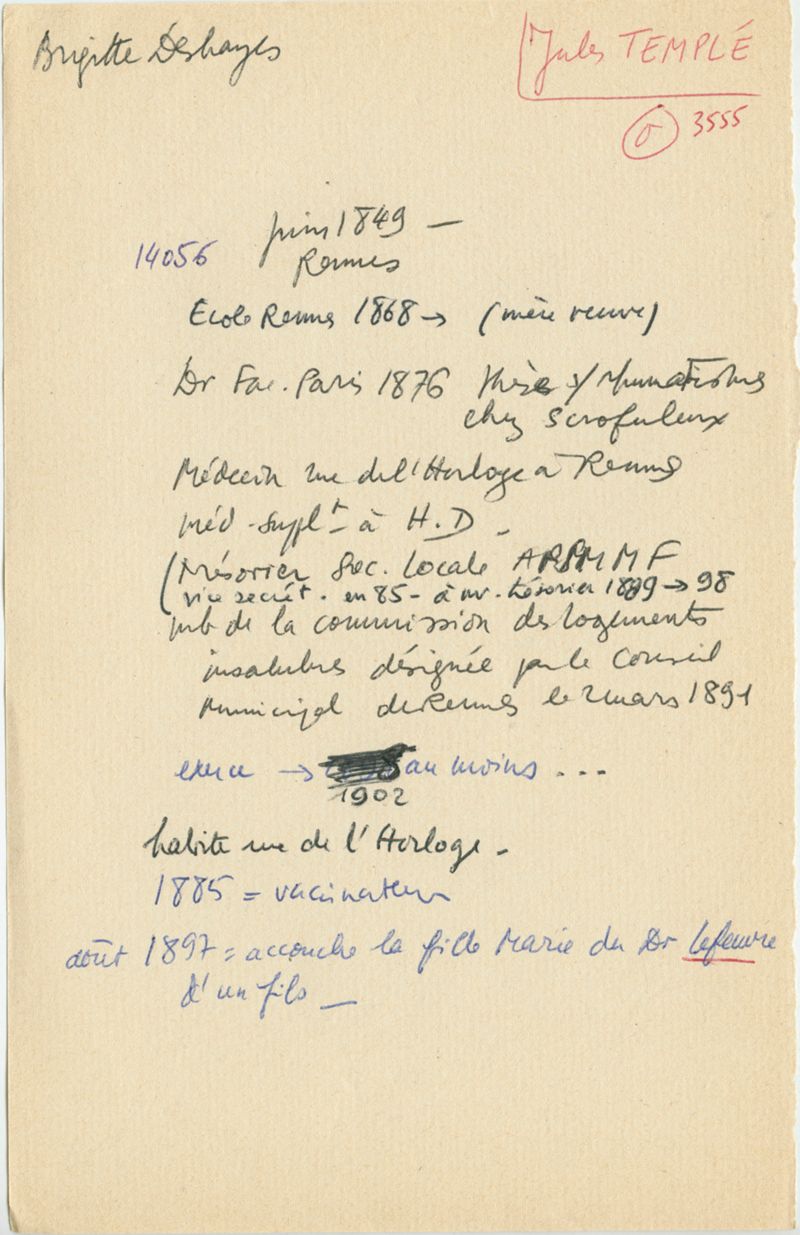 Brigitte Deshayes
Jules TEMPLÉ
3555
juin 1849 —
14056
Rennes
Ecole Rennes 1868 → (mère veuve)
Dr Fac. Paris 1876 thèse s/ rhumatismes
chez scrofuleux
Médecin rue de l'Horloge à Rennes
méd. supplt à H.D.
(Trésorier Soc. Locale ARPMMF
vice secrét. en 85 - à nv. trésorier 1889 → 98
mb de la commission des logements
insalubres désignée par le Conseil
municipal de Rennes le 2 mars 1891
exerce → au moins ...
1902
habite rue de l'Horloge -
1885 = vaccinateur
août 1897 = accouche la fille Marie du Dr Lefeuvre
d'un fils —